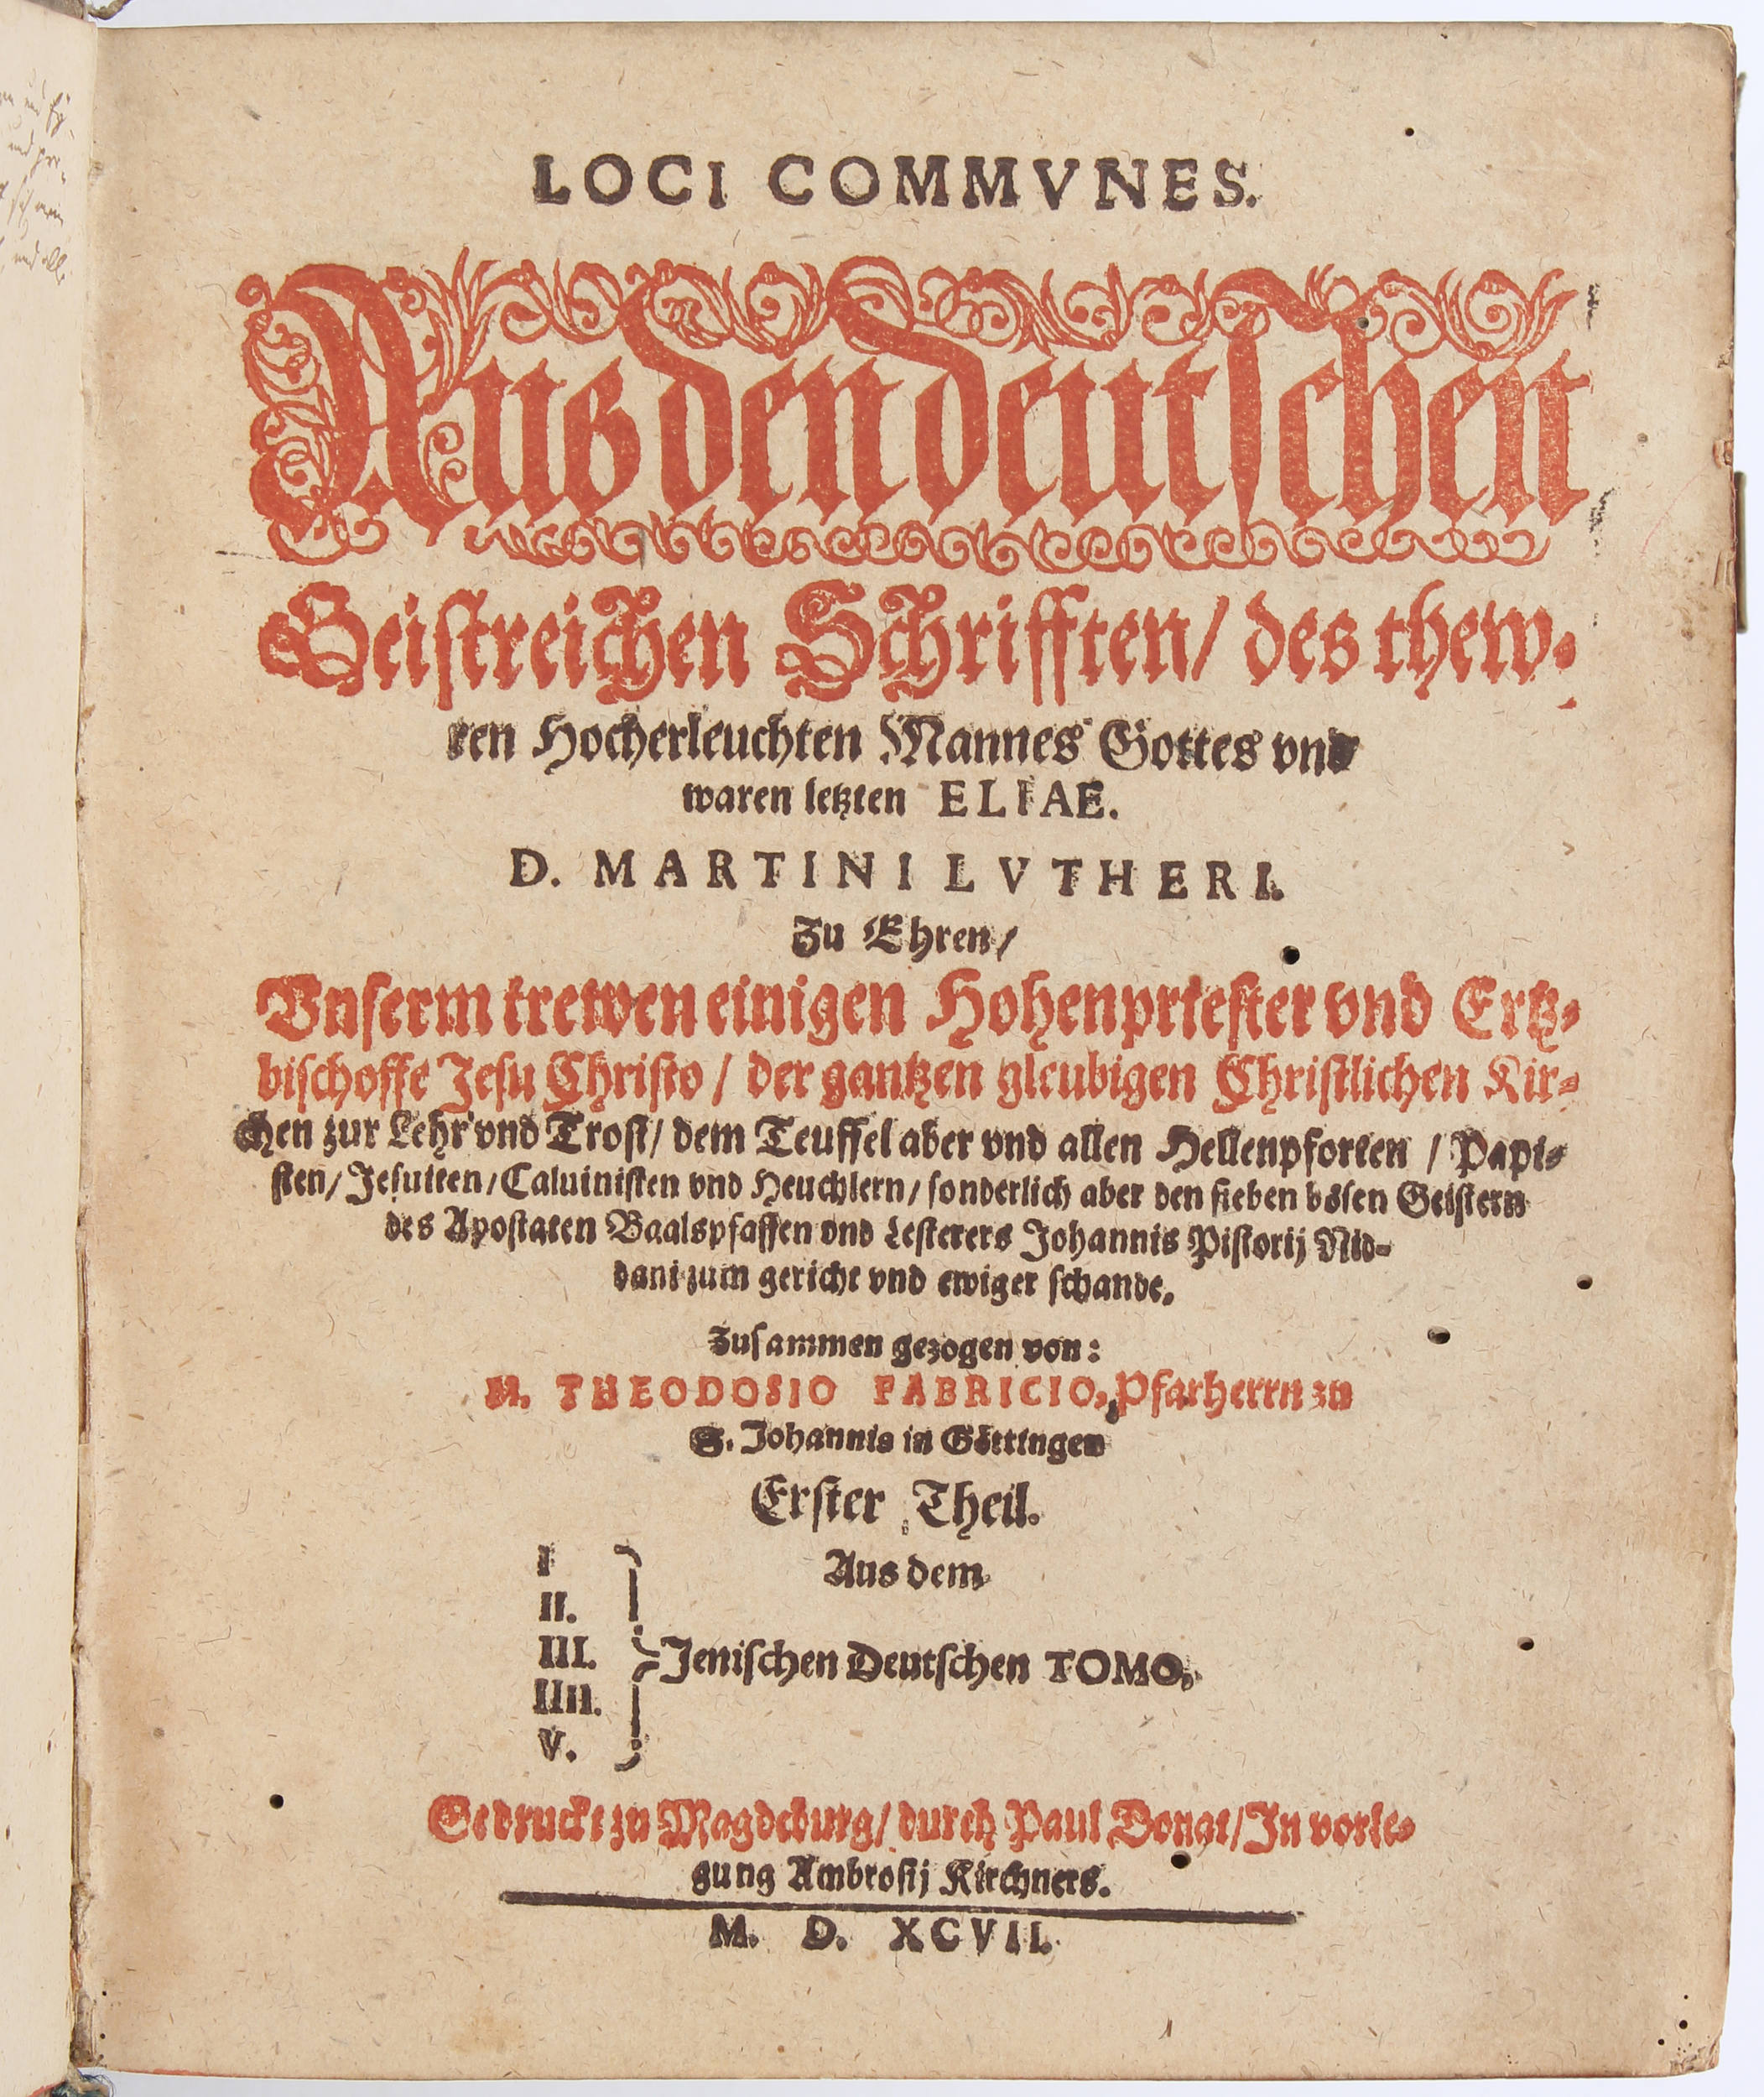 LOCI COMMVNES.
Aus den deutschen
Geistreichen Schrifften/ des thew-
ren Hocherleuchten Mannes Gottes vnd
waren letzten ELIAE.
D. MARTINI LVTHERI.
Zu Ehren/
Vnserm trewen einigen Hohenpriester vnd Ertz-
bischoffe Jesu Christo / der gantzen gleubigen Christlichen Kir-
chen zur Lehr vnd Trost/ dem Teuffel aber vnd allen Hellenpforten / Papi-
sten/ Jesuiten/ Caluinisten vnd Heuchlern/ sonderlich aber den sieben bösen Geistern
des Apostaten Baalspfaffen vnd Lesterers Johannis Pistorij Nid-
dani zum gericht vnd ewiger schande.
Zusammen gezogen von:
M. THEODOSIO FABRICIO, Pfarherrn zu
S. Johannis in Göttingen
Erster Theil.
I
Aus dem
II.
III.
Jenischen Deutschen TOMO.
IIII.
V.
Gedruckt zu Magdeburg/ durch Paul Donat/ In vorle-
gung Ambrosij Kirchners.
M. D. XCVII.